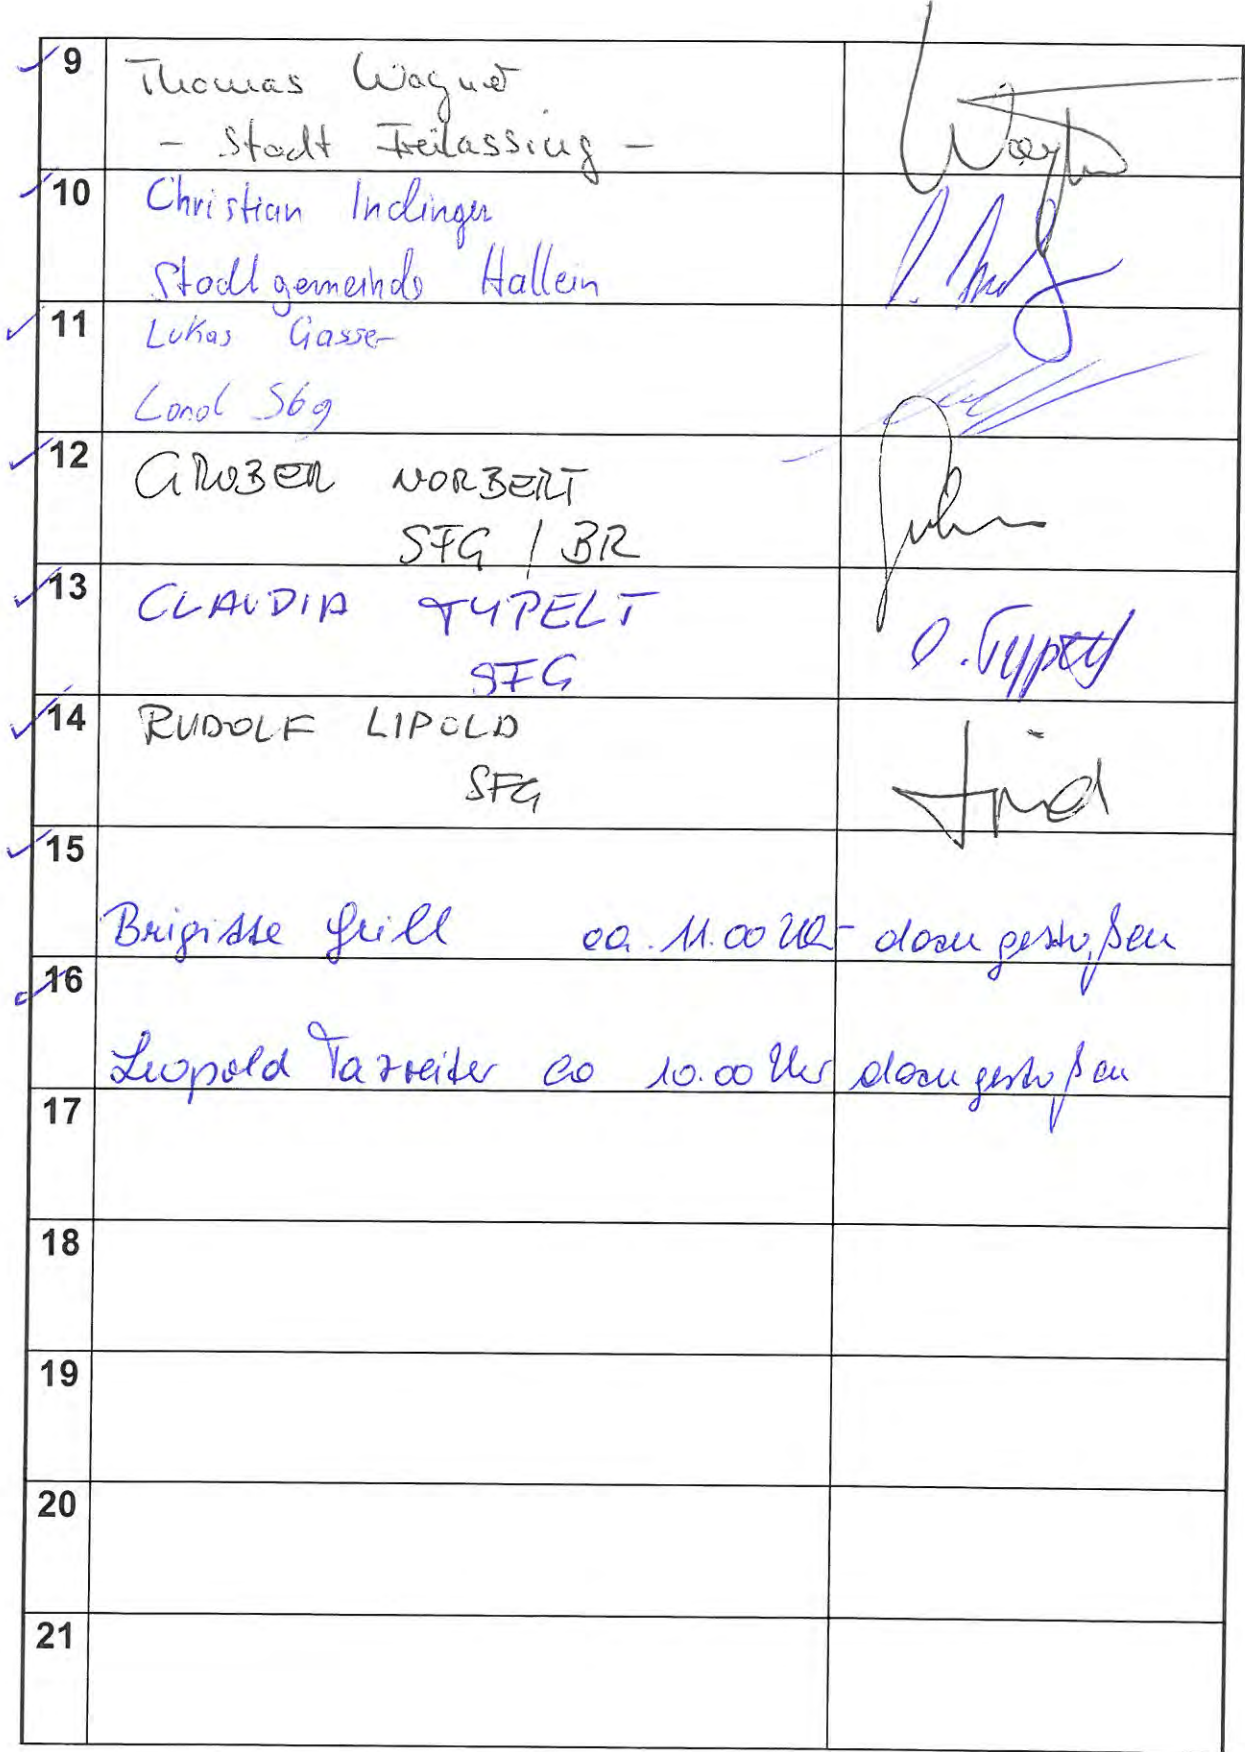 9 Thomas Wagner
- Stadt Freilassing -
10 Christian Indinger
Stadtgemeinde Hallein
11 Lukas Gasser
Land Sbg
12 GRUBER NORBERT
SFG / BR
13 CLAUDIA TYPELT
SFG C. Typelt
14 RUDOLF LIPOLD
SFG
15
Brigitte Grill ca. 11.00 Uhr dazugestoßen
16
Leopold Tazreiter ca 10.00 Uhr dazugestoßen
17
18
19
20
21